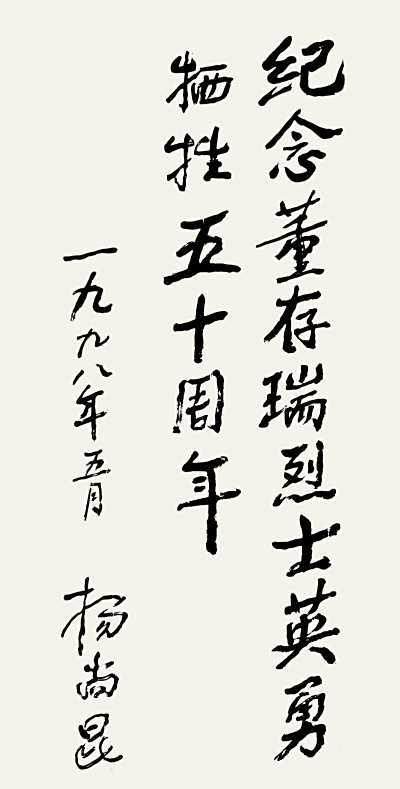 纪念董存瑞烈士英勇
牺牲五十周年
一九九八年五月
杨尚昆